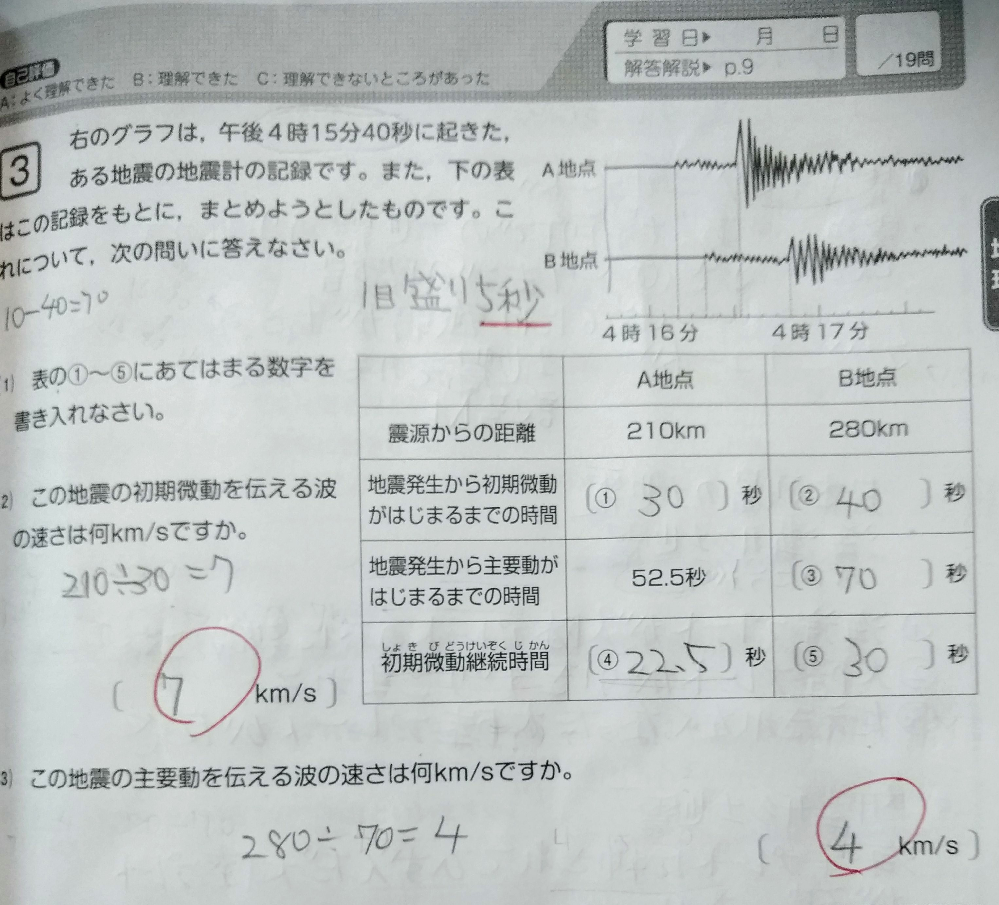 自己評価
A:よく理解できた B:理解できた C:理解できないところがあった
学習日▶ 月 日
解答解説▶ p.9
/19問
3
右のグラフは，午後4時15分40秒に起きた，
ある地震の地震計の記録です。また，下の表
はこの記録をもとに，まとめようとしたものです。こ
れについて，次の問いに答えなさい。
10-40=70
1目盛り5秒
A地点
B地点
4時16分 4時17分
1) 表の①～⑤にあてはまる数字を
書き入れなさい。
A地点 B地点
震源からの距離 210km 280km
地震発生から初期微動
がはじまるまでの時間
〔① 30 〕秒 〔② 40 〕秒
地震発生から主要動が
はじまるまでの時間
52.5秒 〔③ 70 〕秒
しょきびどうけいぞくじかん
初期微動継続時間
〔④ 22.5 〕秒 〔⑤ 30 〕秒
2) この地震の初期微動を伝える波
の速さは何km/sですか。
210÷30=7
〔 7 km/s 〕
3) この地震の主要動を伝える波の速さは何km/sですか。
280÷70=4
〔 4 km/s 〕